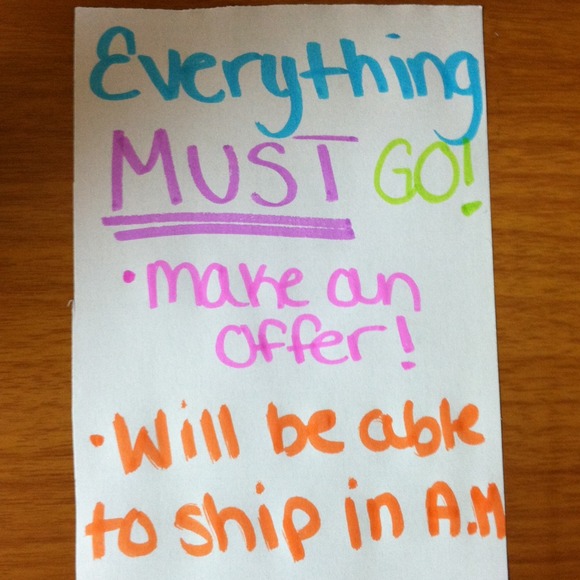 Everything
MUST GO!
• make an
offer!
• Will be able
to ship in A.M